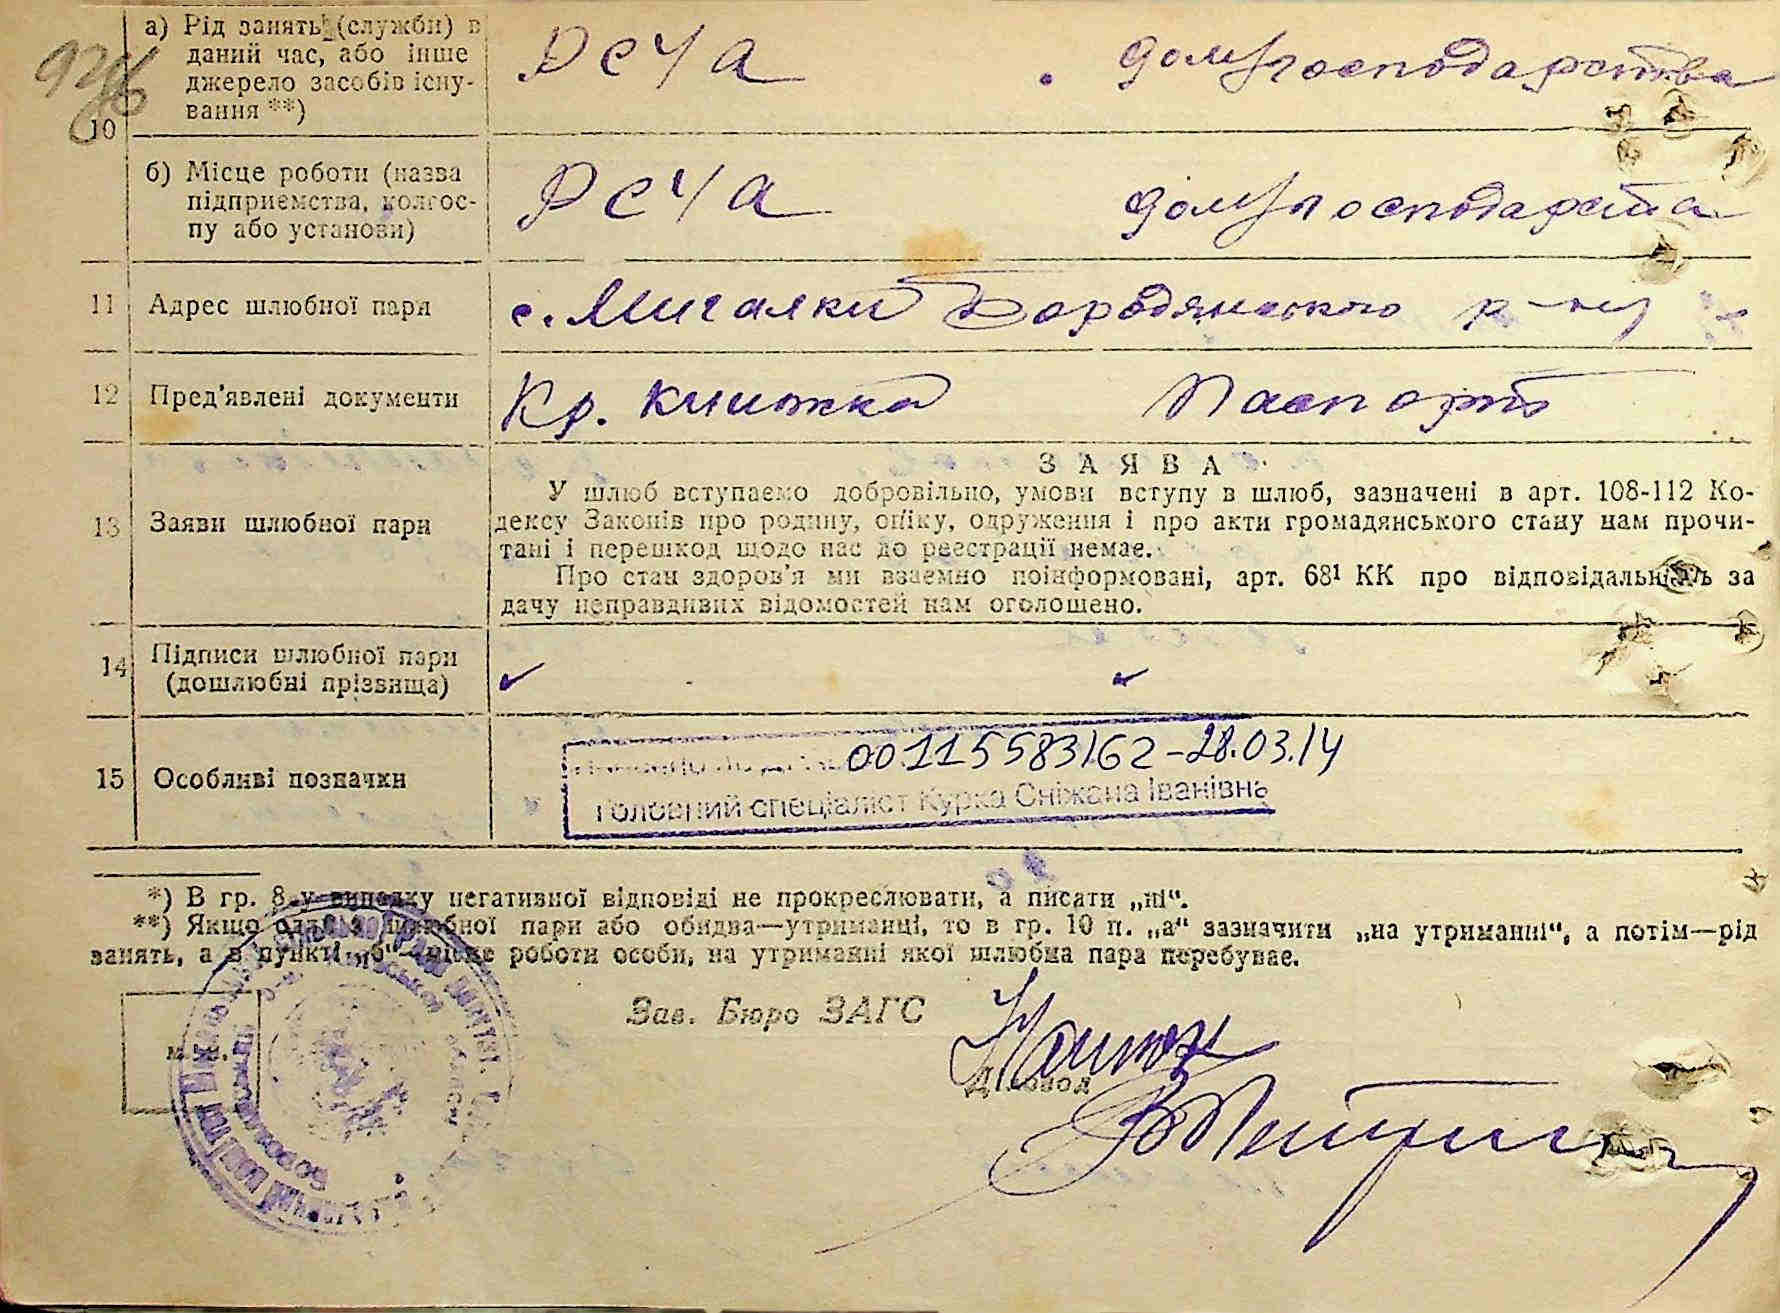 а) Рід занять (служби) в
даний час, або інше
джерело засобів існу-
вання **)
РСЧА домгосподарства
10
б) Місце роботи (назва
підприємства, колгос-
пу або установи)
РСЧА домгосподарства
11 Адрес шлюбної пари с. Мигалки Бородянського р-ну
12 Пред'явлені документи Кр. книжка Паспорт
ЗАЯВА
13 Заяви шлюбної пари
У шлюб вступаємо добровільно, умови вступу в шлюб, зазначені в арт. 108-112 Ко-
дексу Законів про родину, опіку, одруження і про акти громадянського стану нам прочи-
тані і перешкод щодо нас до реєстрації немає.
Про стан здоров'я ми взаємно поінформовані, арт. 68¹ КК про відповідальність за
дачу неправдивих відомостей нам оголошено.
14 Підписи шлюбної пари
(дошлюбні прізвища)
00115583162-28.03.14
15 Особливі позначки
Головний спеціаліст Курка Сніжана Іванівна
*) В гр. 8 у випадку негативної відповіді не прокреслювати, а писати „ні“.
**) Якщо один з шлюбної пари або обидва—утриманці, то в гр. 10 п. „а“ зазначити „на утриманні“, а потім—рід
занять, а в пункті „б“—місце роботи особи, на утриманні якої шлюбна пара перебуває.
Зав. Бюро ЗАГС
м.п.
Діловод